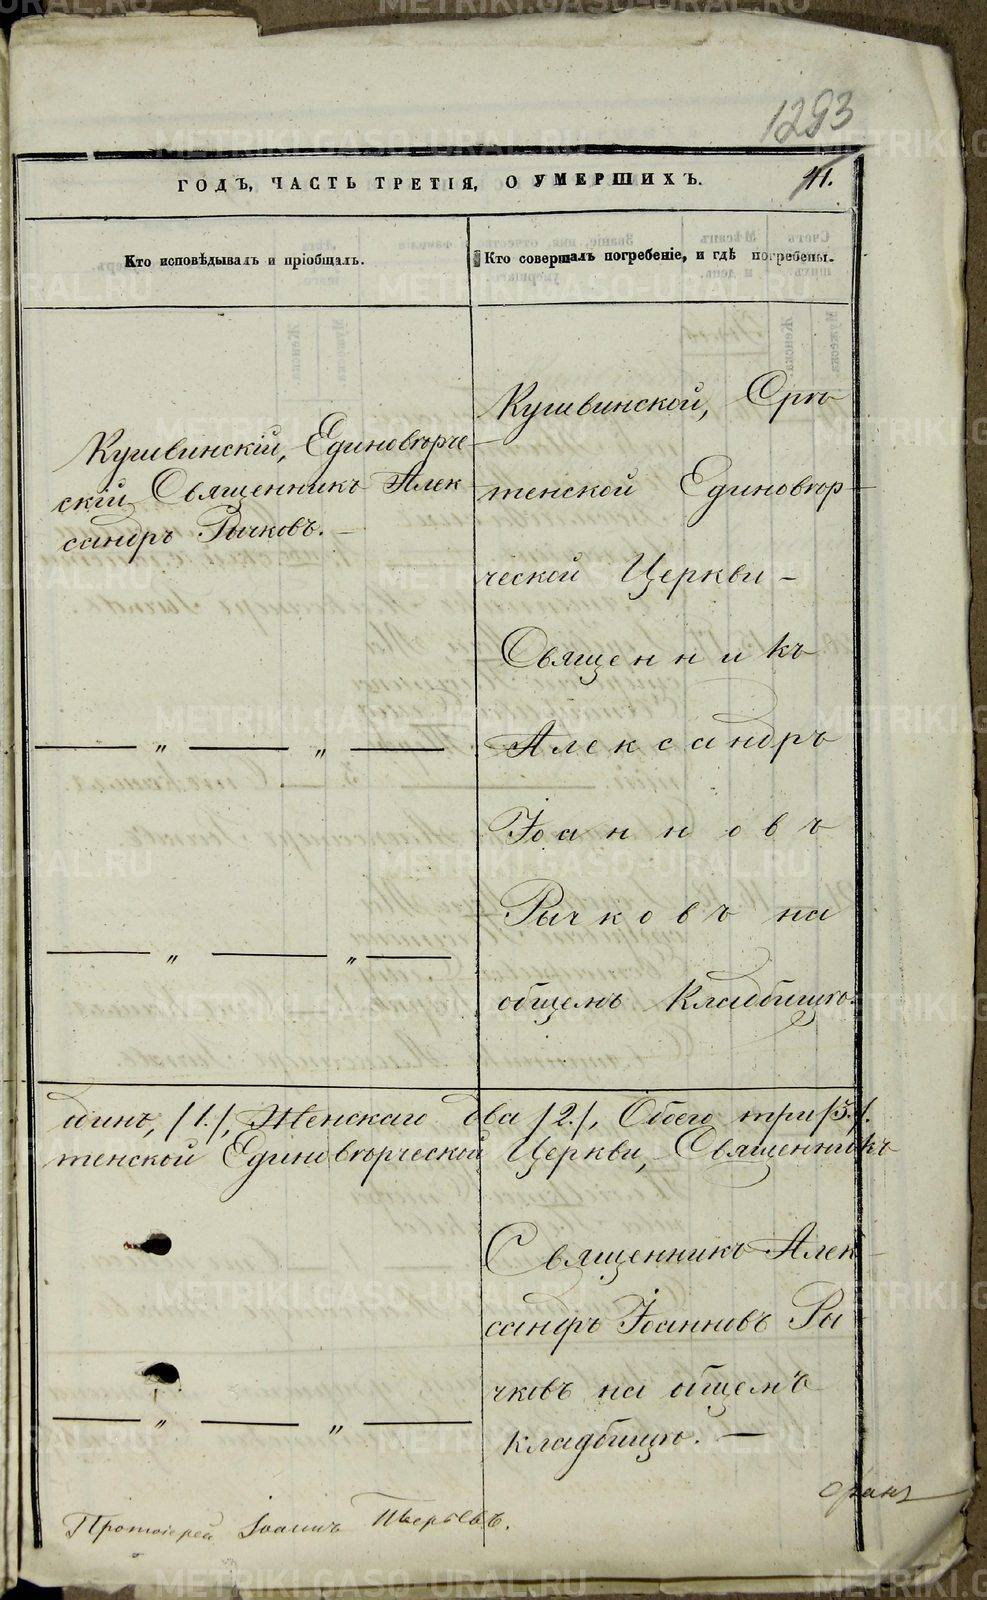 1293
ГОДЪ, ЧАСТЬ ТРЕТІЯ, О УМЕРШИХЪ.
41.
Кто исповѣдывалъ и пріобщалъ.
Кто совершалъ погребеніе, и гдѣ погребены.
Кушвинскій, Единовѣрче-
скій Священникъ Алек
сандръ Рычковъ. —
Кушвинской, Срѣ-
тенской Единовѣр-
ческой Церкви –
Священникъ
Александръ
Іоанновъ
Рычковъ на
общемъ кладбищѣ.
— „ — „ —
— „ — „ —
динъ, /1./, Женскаго два /2./, Обоего три /3./.
тенской Единовѣрческой Церкви, Священникъ
Священникъ Алек-
сандръ Іоанновъ Ры
чковъ на общемъ
кладбищѣ. —
— „ — „ —
Протоіерей Іоаннъ
METRIKI.GASO-URAL.RU